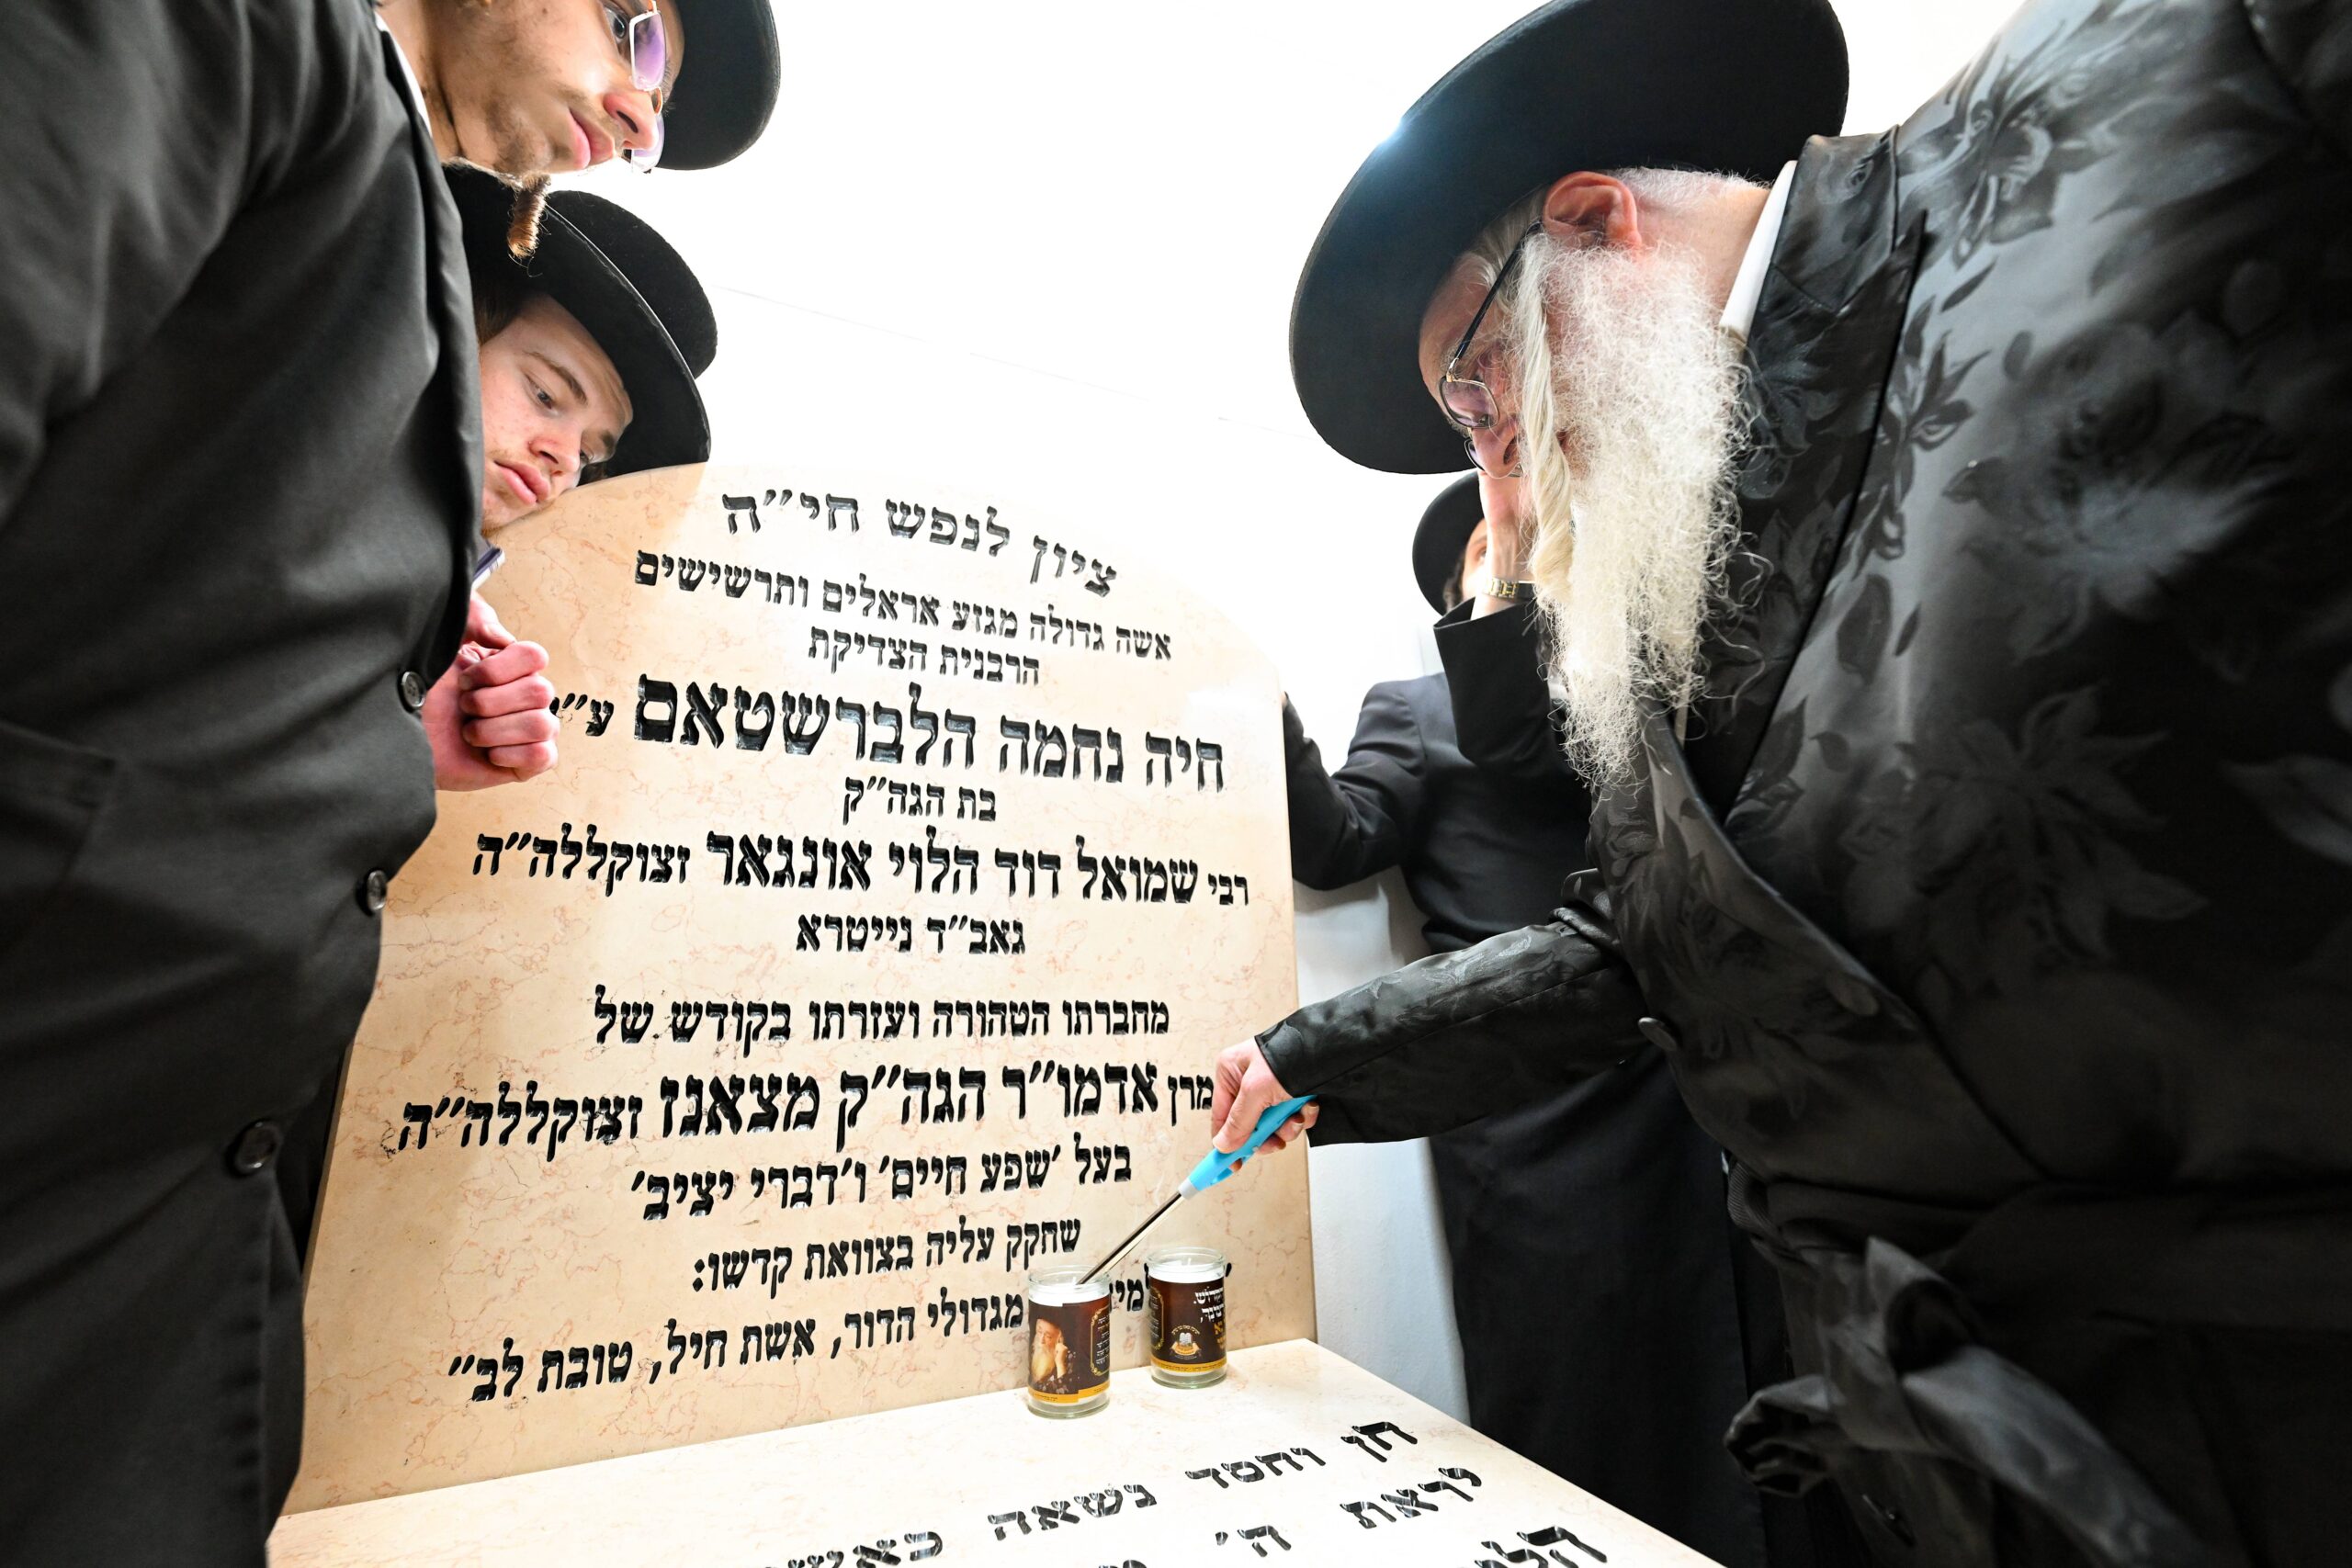 ציון לנפש חי״ה
אשה גדולה מגזע אראלים ותרשישים
הרבנית הצדיקת
חיה נחמה הלברשטאם
בת הגה״ק
רבי שמואל דוד הלוי אונגאר זצוקללה״ה
גאב״ד נייטרא
מחברתו הטהורה ועזרתו בקודש של
מרן אדמו״ר הגה״ק מצאנז זצוקללה״ה
בעל ׳שפע חיים׳ ו׳דברי יציב׳
שחקק עליה בצוואת קדשו:
מגדולי הדור, אשת חיל, טובת לב״
חן וחסד נשאה
לקראת ה׳